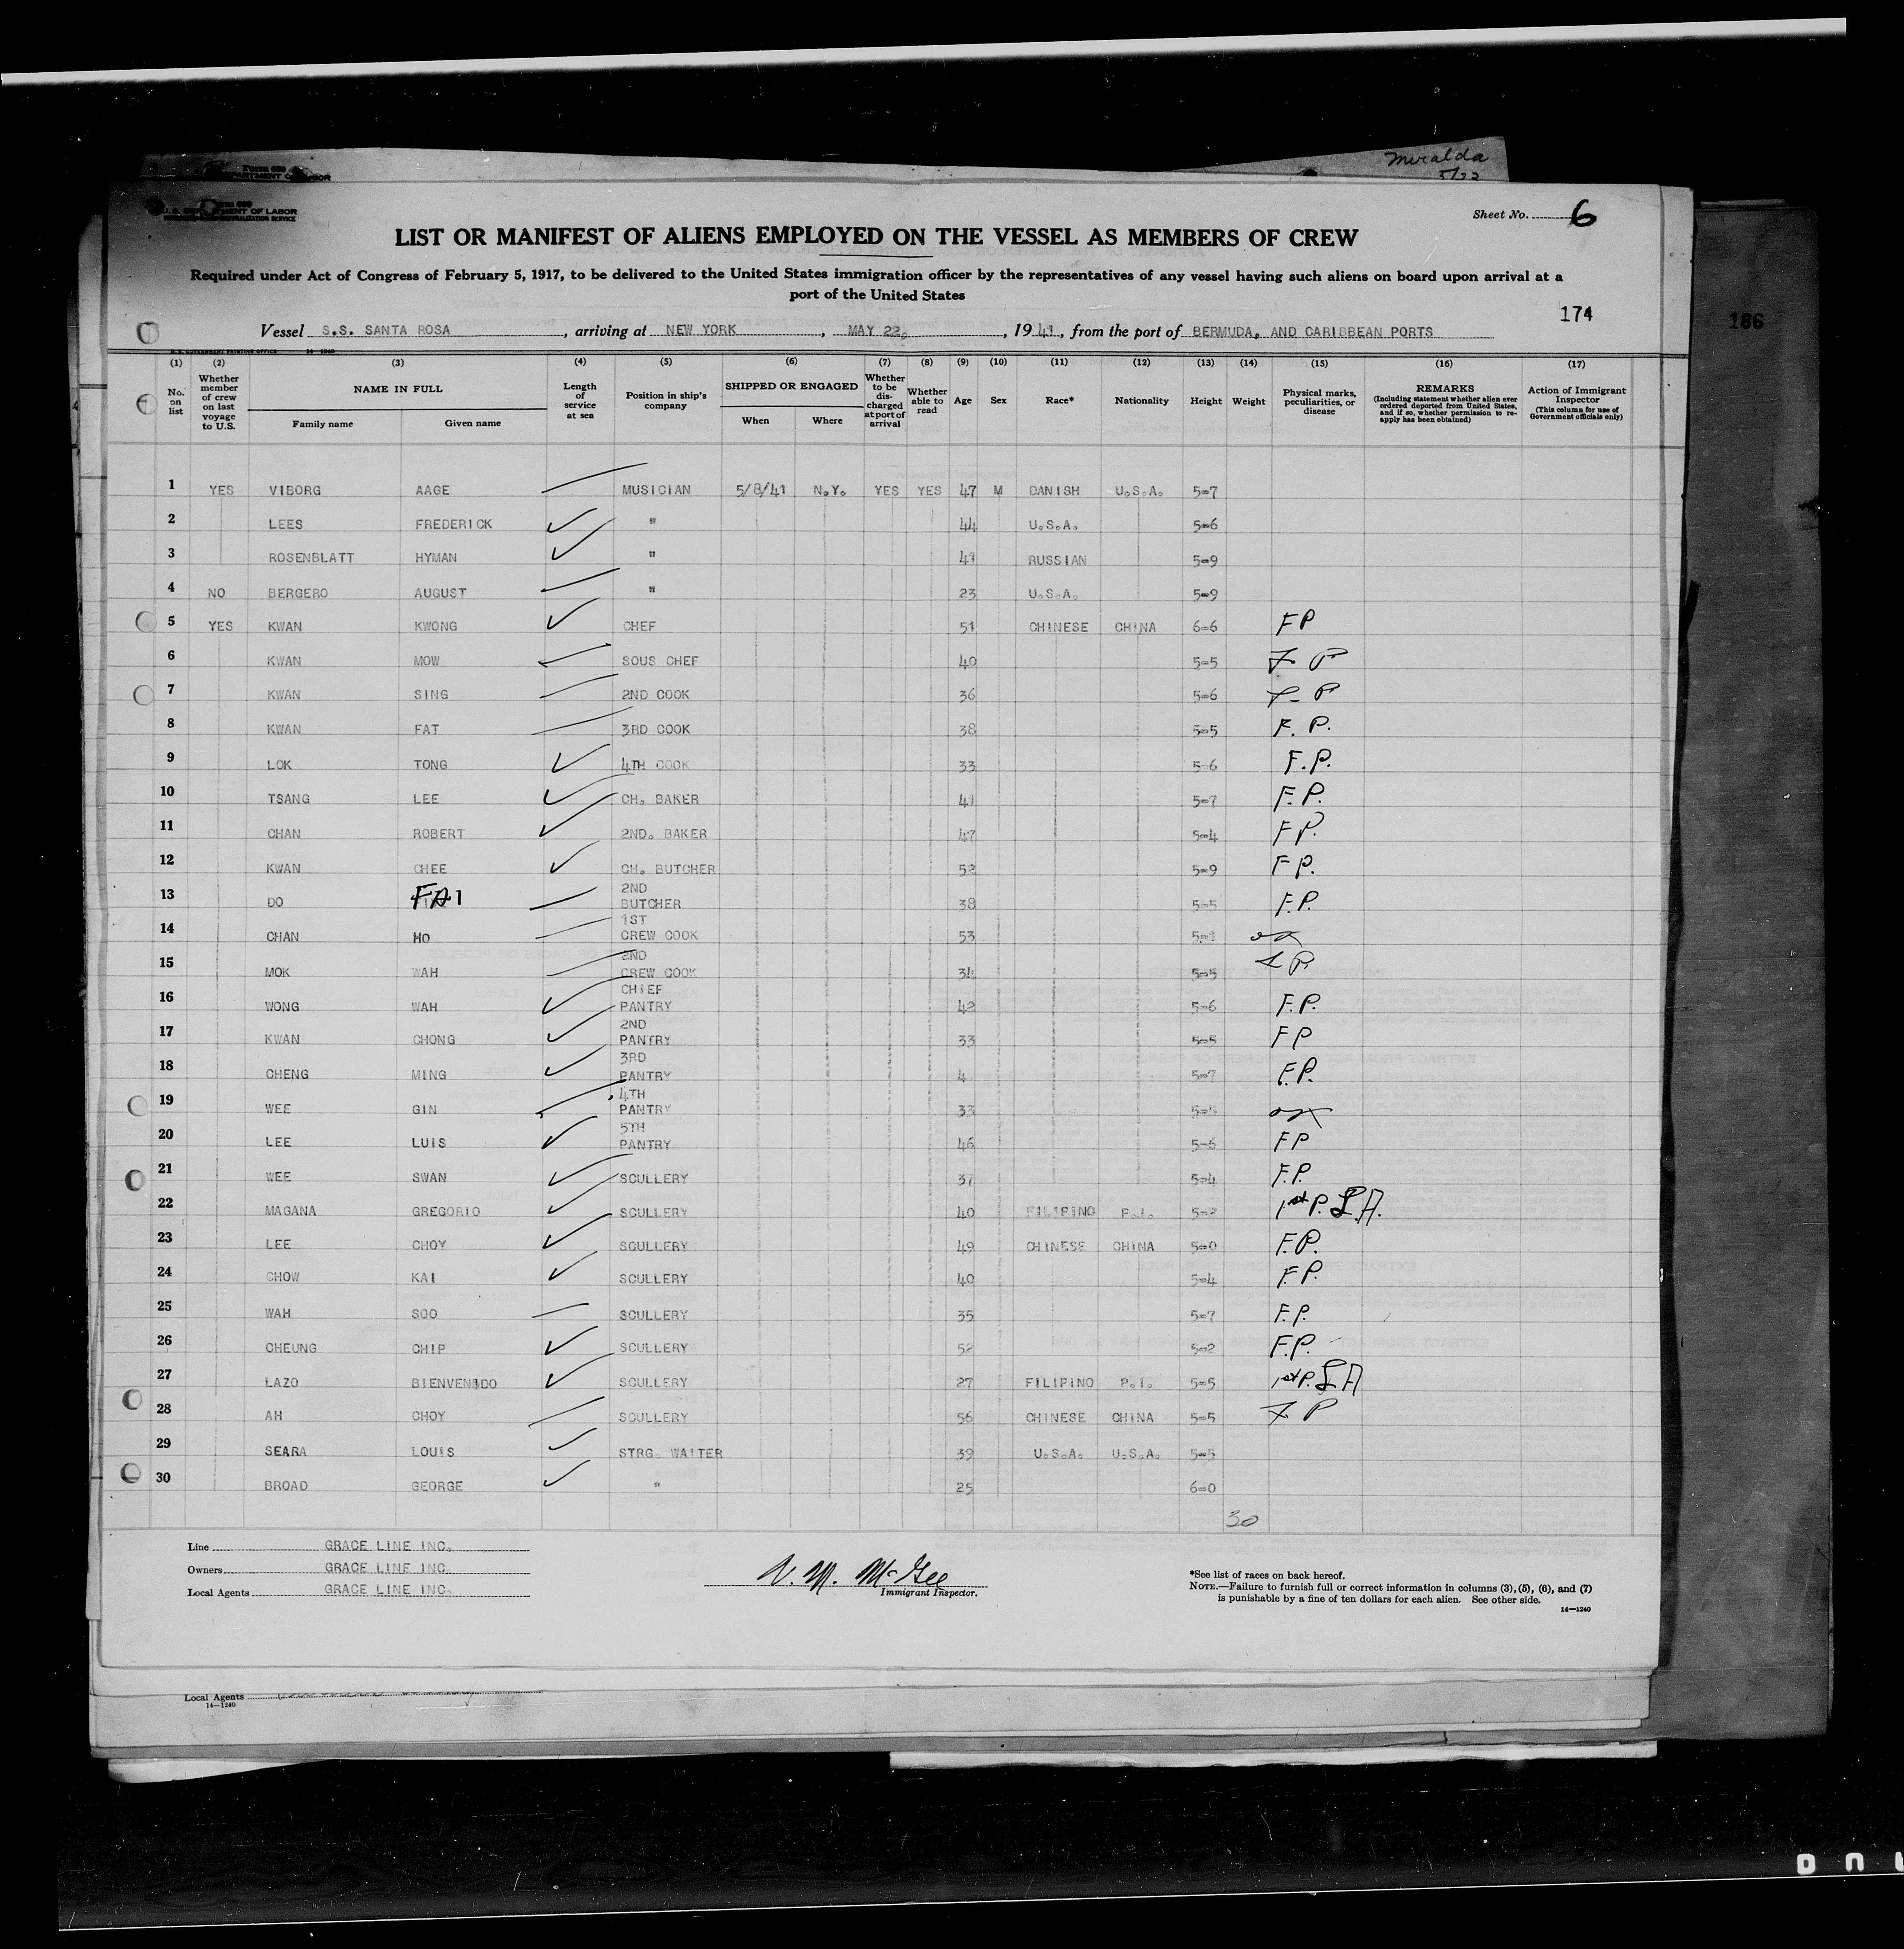 Miralda
5/22
Form 680
U.S. DEPARTMENT OF LABOR
Sheet No. 6
LIST OR MANIFEST OF ALIENS EMPLOYED ON THE VESSEL AS MEMBERS OF CREW
Required under Act of Congress of February 5, 1917, to be delivered to the United States immigration officer by the representatives of any vessel having such aliens on board upon arrival at a
port of the United States
174
186
Vessel S.S. SANTA ROSA, arriving at NEW YORK, MAY 22, 1941, from the port of BERMUDA, AND CARIBBEAN PORTS
(1) (2) (3) (4) (5) (6) (7) (8) (9) (10) (11) (12) (13) (14) (15) (16) (17)
No. on list
Whether member of crew on last voyage to U.S.
NAME IN FULL
Family name
Given name
Length of service at sea
Position in ship's company
SHIPPED OR ENGAGED
When
Where
Whether to be discharged at port of arrival
Whether able to read
Age
Sex
Race*
Nationality
Height
Weight
Physical marks, peculiarities, or disease
REMARKS
(Including statement whether alien ever ordered deported from United States, and if so, whether permission to reapply has been obtained)
Action of Immigrant Inspector
(This column for use of Government officials only)
1 YES VIBORG AAGE MUSICIAN 5/8/41 N.Y. YES YES 47 M DANISH U.S.A. 5-7
2 LEES FREDERICK " 44 U.S.A. 5-6
3 ROSENBLATT HYMAN " 41 RUSSIAN 5-9
4 NO BERGERO AUGUST " 23 U.S.A. 5-9
5 YES KWAN KWONG CHEF 51 CHINESE CHINA 6-6 FP
6 KWAN MOW SOUS CHEF 40 5-5 F P
7 KWAN SING 2ND COOK 36 5-6 F P
8 KWAN FAT 3RD COOK 38 5-5 F. P.
9 LOK TONG 4TH COOK 33 5-6 F.P.
10 TSANG LEE CH. BAKER 41 5-7 F.P.
11 CHAN ROBERT 2ND. BAKER 47 5-4 FP.
12 KWAN CHEE CH. BUTCHER 52 5-9 FP.
13 DO FAI 2ND BUTCHER 38 5-5 F.P.
14 CHAN HO 1ST CREW COOK 53
15 MOK WAH 2ND CREW COOK 34 5-5 P
16 WONG WAH CHIEF PANTRY 42 5-6 F.P.
17 KWAN CHONG 2ND PANTRY 33 5-5 FP
18 CHENG MING 3RD PANTRY 4 5-7 F.P.
19 WEE GIN 4TH PANTRY 33
20 LEE LUIS 5TH PANTRY 46 5-6 FP
21 WEE SWAN SCULLERY 37 5-4 F.P.
22 MAGANA GREGORIO SCULLERY 40 FILIPINO P.I. 5-2 1st P. L.A.
23 LEE CHOY SCULLERY 49 CHINESE CHINA 5-0 F.P.
24 CHOW KAI SCULLERY 40 5-4 F.P.
25 WAH SOO SCULLERY 35 5-7 F.P.
26 CHEUNG CHIP SCULLERY 52 5-2 F.P.
27 LAZO BIENVENIDO SCULLERY 27 FILIPINO P.I. 5-5 1st P. LA
28 AH CHOY SCULLERY 56 CHINESE CHINA 5-5 F P
29 SEARA LOUIS STRG. WAITER 39 U.S.A. U.S.A. 5-5
30 BROAD GEORGE " 25 6-0
30
Line GRACE LINE INC.
Owners GRACE LINE INC.
Local Agents GRACE LINE INC.
V. M. McGee
Immigrant Inspector.
*See list of races on back hereof.
NOTE.—Failure to furnish full or correct information in columns (3), (5), (6), and (7)
is punishable by a fine of ten dollars for each alien. See other side.
14—1240
Local Agents
14—1240